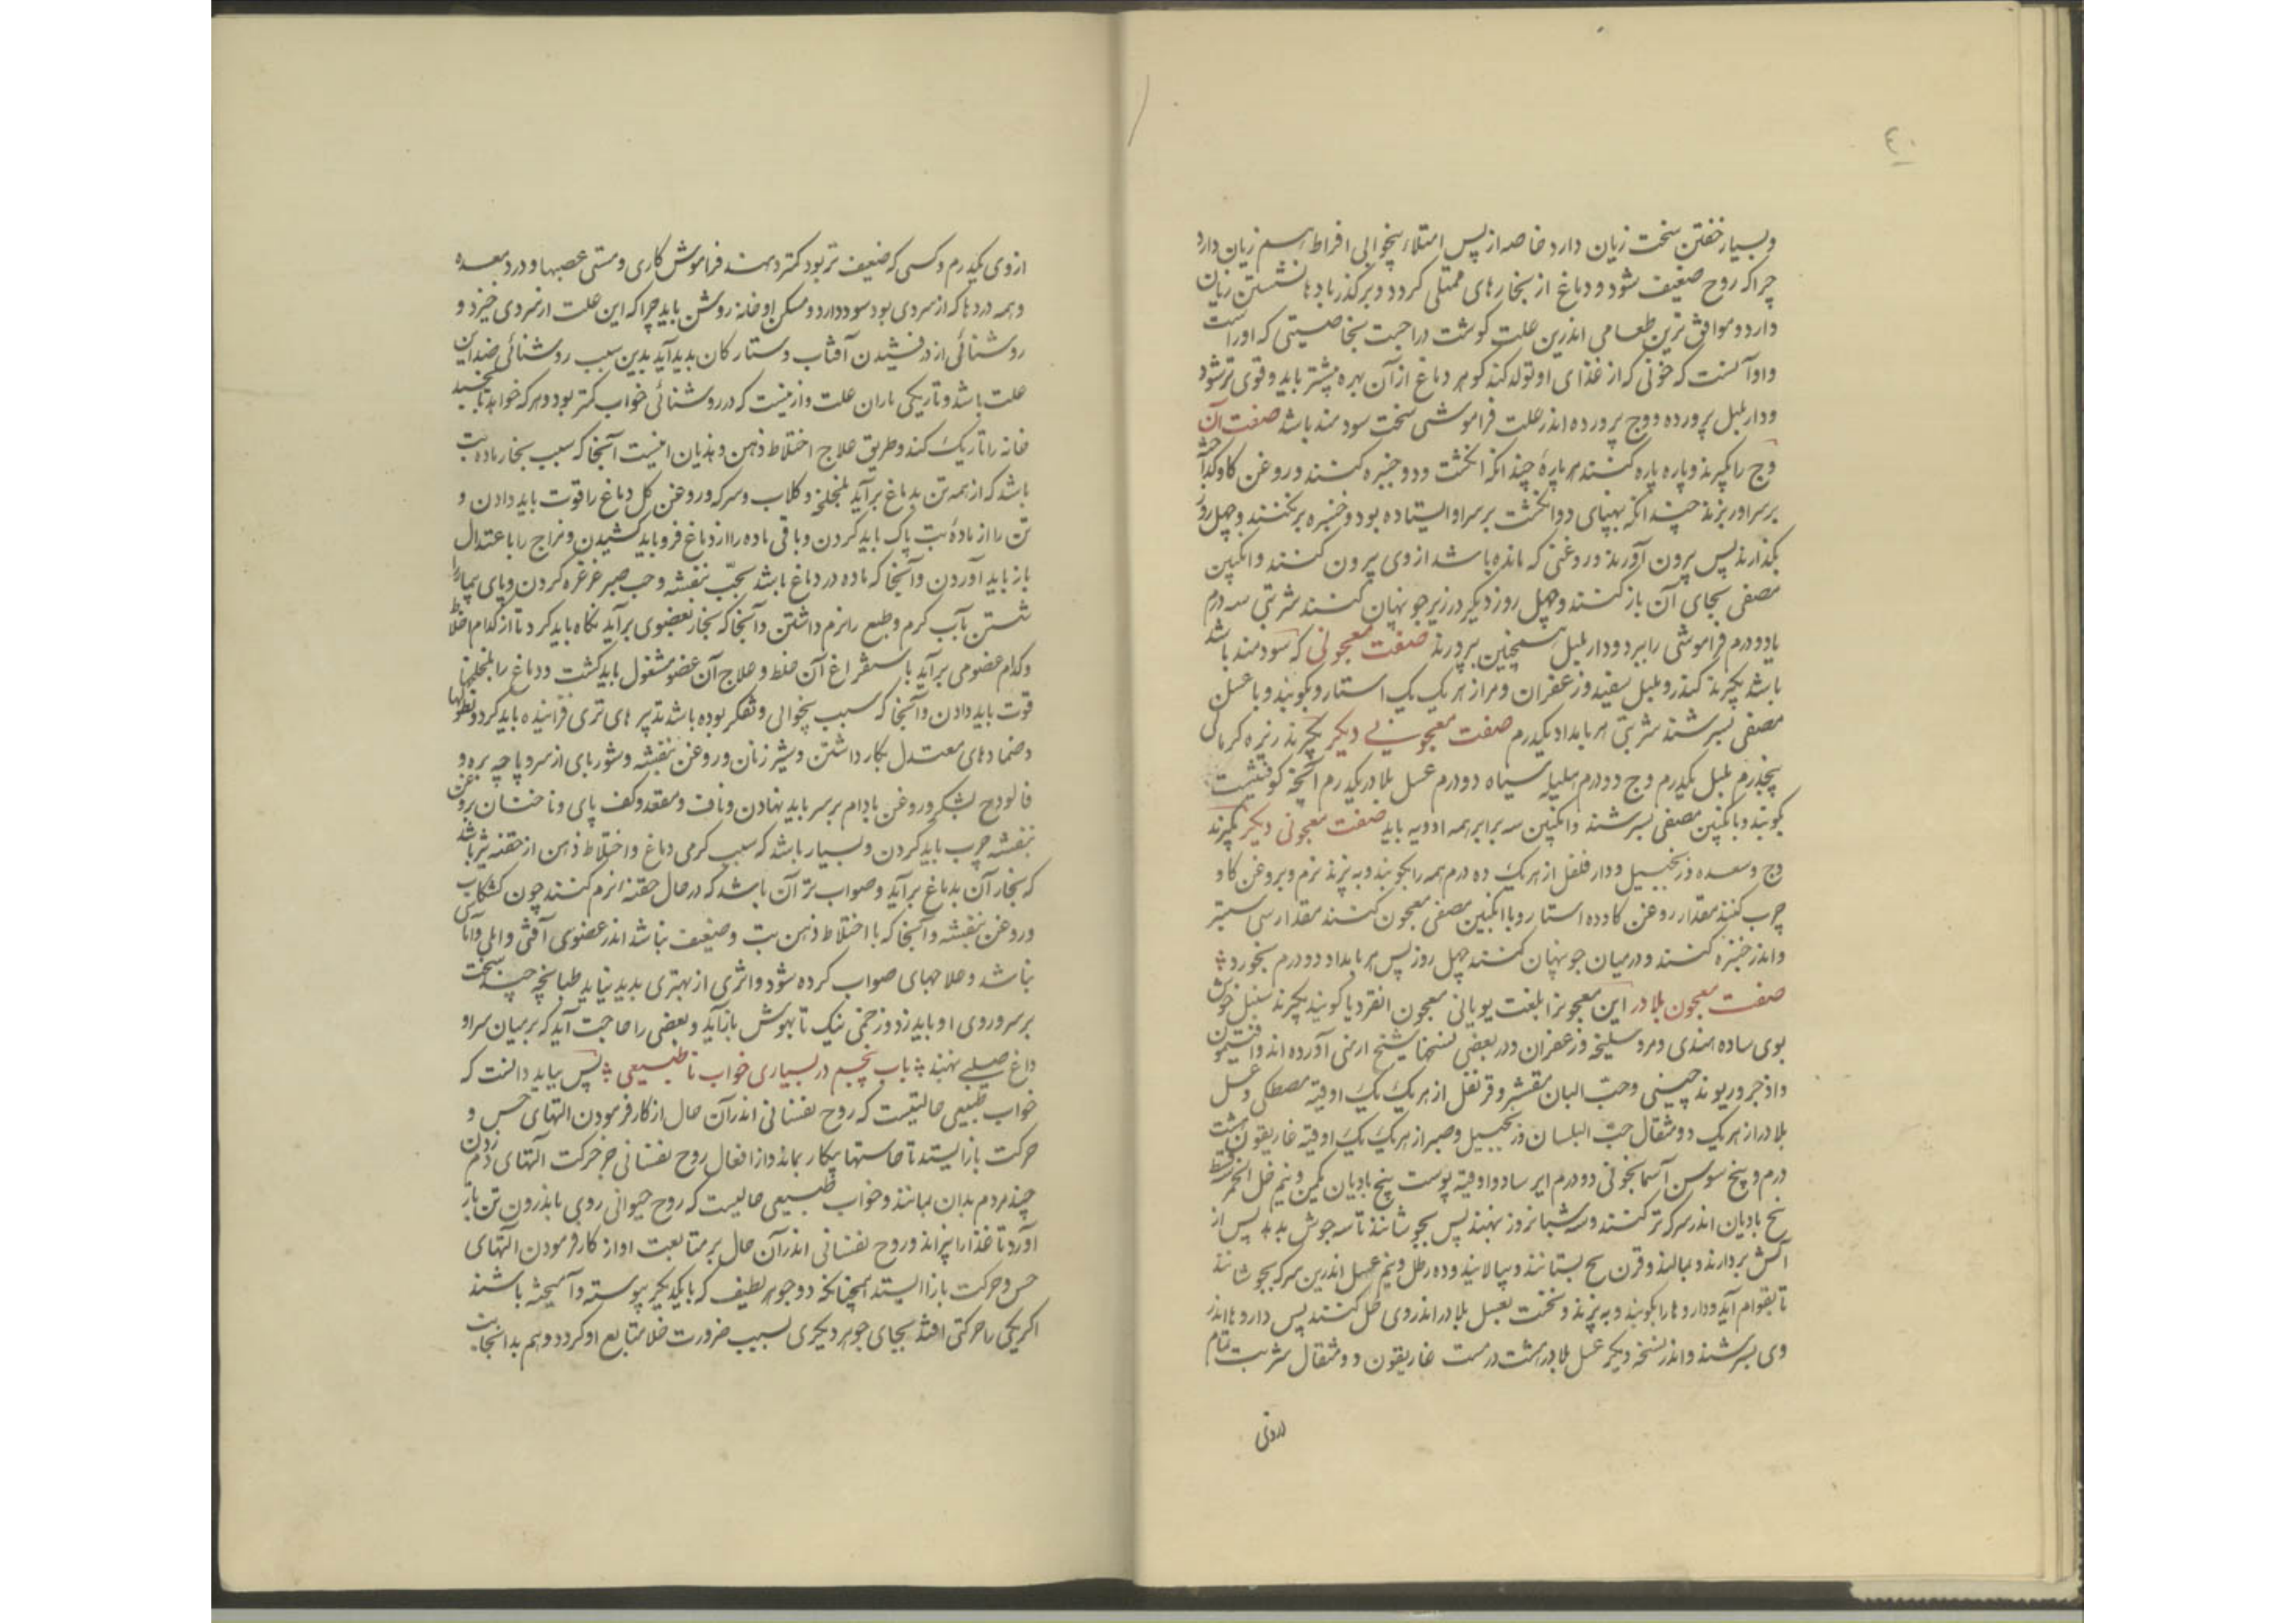 ٤٠
وبسیار خفتن سخت زیان دارد خاصه از پس امتلا و بیخوابی افراط هم زیان دارد
چرا که روح ضعیف شود و دماغ از بخارهای ممتلی کردد و بر کذر بادها نشستن زیان
دارد و موافق ترین طعامی اندرین علت کوشت دراجست بخاصیتی که اوراست
و او آنست که خونی که از غذای او تولد کند کوهر دماغ از آن بهره بیشتر یابد و قوی تر شود
و دار بلبل پرورده و وج پرورده اندر علت فراموشی سخت سودمند باشد صفت آن
وج را بکیرند و پاره پاره کنند هر پارهٔ چند انکشت و در خنبره کنند و روغن کاو
بر سر او ریزند چندانکه بپهنای دو انکشت بر سر او ایستاده بود و خنبره بر کنند و چهل روز
بکذارند پس بیرون آورند و روغنی که مانده باشد از وی بیرون کنند و انکبین
مصفی بجای آن باز کنند و چهل روز دیکر در زیر جو نهان کنند شربتی سه درم
یا دو درم فراموشی را ببرد و دار بلبل همچنین پرورند صفت معجونی که سودمند باشد
باشد بکیرند کندر و بلبل سفید و زعفران و مر از هر یک یک استار و بکوبند و با عسل
مصفی بسرشند شربتی هر بامداد یکدرم صفت معجونی دیکر بکیرند زیره کرمانی
پنجدرم بلبل یکدرم وج دو درم هلیله سیاه دو درم عسل بلادر یکدرم آنچه کوفتنیست
بکوبند و با انکبین مصفی بسرشند و انکبین سه برابر همه ادویه باید صفت معجونی دیکر بکیرند
وج و سعده و زنجبیل و دار فلفل از هر یک ده درم همه را بکوبند و به پزند نرم و بروغن کاو
چرب کنند مقدار روغن کاو ده استار و با انکبین مصفی معجون کنند مقدار سی ستیر
و اندر خنبره کنند و در میان جو نهان کنند چهل روز پس هر بامداد دو درم بخورد
صفت معجون بلادر این معجونرا بلغت یونانی معجون انقردیا کویند بکیرند سنبل خوش
بوی ساده هندی و مر و سلیخه و زعفران و در بعضی نسختها شیح ارمنی آورده اند و افتیمون
و اذخر و ریوند چینی و حب البان مقشر و قرنفل از هر یک یک اوقیه مصطکی و عسل
بلادر از هر یک دو مثقال حب البلسان و زنجبیل و صبر از هر یک یک اوقیه غاریقون هشت
درم و بیخ سوسن آسمانجونی دو درم ایرسا دو اوقیه پوست بیخ بادیان یکمن و نیم خل الخمر
بیخ بادیان اندر سرکه تر کنند و سه شبانروز بنهند پس بجوشانند تا سه جوش بدهد پس از
آتش بردارند و بمالند و بستانند و بپالایند و ده رطل و نیم عسل اندرین سرکه بجوشانند
تا بقوام آید و داروها را بکوبند و به پزند و نخست عسل بلادر اندر وی حل کنند پس داروها اندر
وی بسرشند و اندر نسخه دیکر عسل بلادر هشت درمست غاریقون دو مثقال شربت تمام
از وی یکدرم و کسی که ضعیف تر بود کمتر دهند فراموش کاری و سستی عصبها و درد معده
و همه دردها که از سردی بود سود دارد و مسکن او خانهٔ روشن باید چرا که این علت از سردی خیزد و
روشنائی از درفشیدن آفتاب و ستارکان پدید آید بدین سبب روشنائی ضد این
علت باشد و تاریکی یاران علت و از نیست که در روشنائی خواب کمتر بود و هر که خواهد تا بخسبد
خانه را تاریک کند و طریق علاج اختلاط ذهن و هذیان اینست آنجا که سبب بخار ماده تب
باشد که از همه تن بدماغ برآید بلخلخه و کلاب و سرکه و روغن کل دماغ را قوت باید دادن و
تن را از مادهٔ تب پاک باید کردن و باقی ماده را از دماغ فرو باید کشیدن و مزاج را باعتدال
باز باید آوردن و آنجا که ماده در دماغ باشد بحب بنفشه و حب صبر غرغره کردن و پای بیمار را
شستن بآب کرم و طبع را نرم داشتن و آنجا که بخار بعضوی برآید نکاه باید کرد تا از کدام اخلاط
و کدام عضو می برآید باستفراغ آن خلط و علاج آن عضو مشغول باید کشت و دماغ را بلخلخها
قوت باید دادن و آنجا که سبب بیخوابی و تفکر بوده باشد تدبیرهای تری فزاینده باید کرد و نطولها
و ضمادهای معتدل بکار داشتن و شیر زنان و روغن بنفشه و شوربای از سر و پاچه بره و
فالودج بشکر و روغن بادام بر سر باید نهادن و ناف و مقعد و کف پای و ناخنان بروغن
بنفشه چرب باید کردن و بسیار باشد که سبب کرمی دماغ و اختلاط ذهن از حقنه تیز باشد
که بخار آن بدماغ برآید و صواب تر آن باشد که در حال حقنهٔ نرم کنند چون کشکاب
و روغن بنفشه و آنجا که با اختلاط ذهن تب و ضعیف نباشد اندر عضوی آفتی و المی و آماسی
نباشد و علاجهای صواب کرده شود و اثری از بهتری پدید نیاید طبانچه چند سخت
بر سر و روی او باید زد و زخمی نیک تا بهوش بازآید و بعضی را حاجت آید که بر میان سر او
داغ صلیبی نهند باب پنجم در بسیاری خواب نا طبیعی پس بباید دانست که
خواب طبیعی حالیتست که روح نفسانی اندر آن حال از کار فرمودن التهای حس و
حرکت بازایستد تا حاستها بیکار بماند و از افعال روح نفسانی جز حرکت آلتهای دم زدن
چند مردم بدان بمانند و خواب طبیعی حالیست که روح حیوانی روی باندرون تن باز
آورد تا غذا را بپزاند و روح نفسانی اندر آن حال بر متابعت او از کار فرمودن التهای
حس و حرکت بازایستد همچنانکه دو جوهر لطیف که با یکدیکر پیوسته و آمیخته باشند
اکر یکی را حرکتی افتد بجای جوهر دیکری بسبب ضرورت خلا متابع او کردد و هم بدانجانب